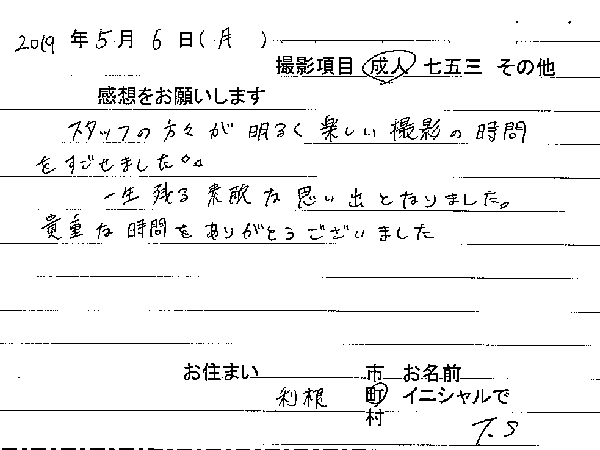 2019 年 5 月 6 日(月 )
撮影項目 成人 七五三 その他
感想をお願いします
スタッフの方々が明るく楽しい撮影の時間
をすごせました。。
一生残る素敵な思い出となりました。
貴重な時間をありがとうございました
お住まい 市 お名前
利根 町 イニシャルで
村 T.S